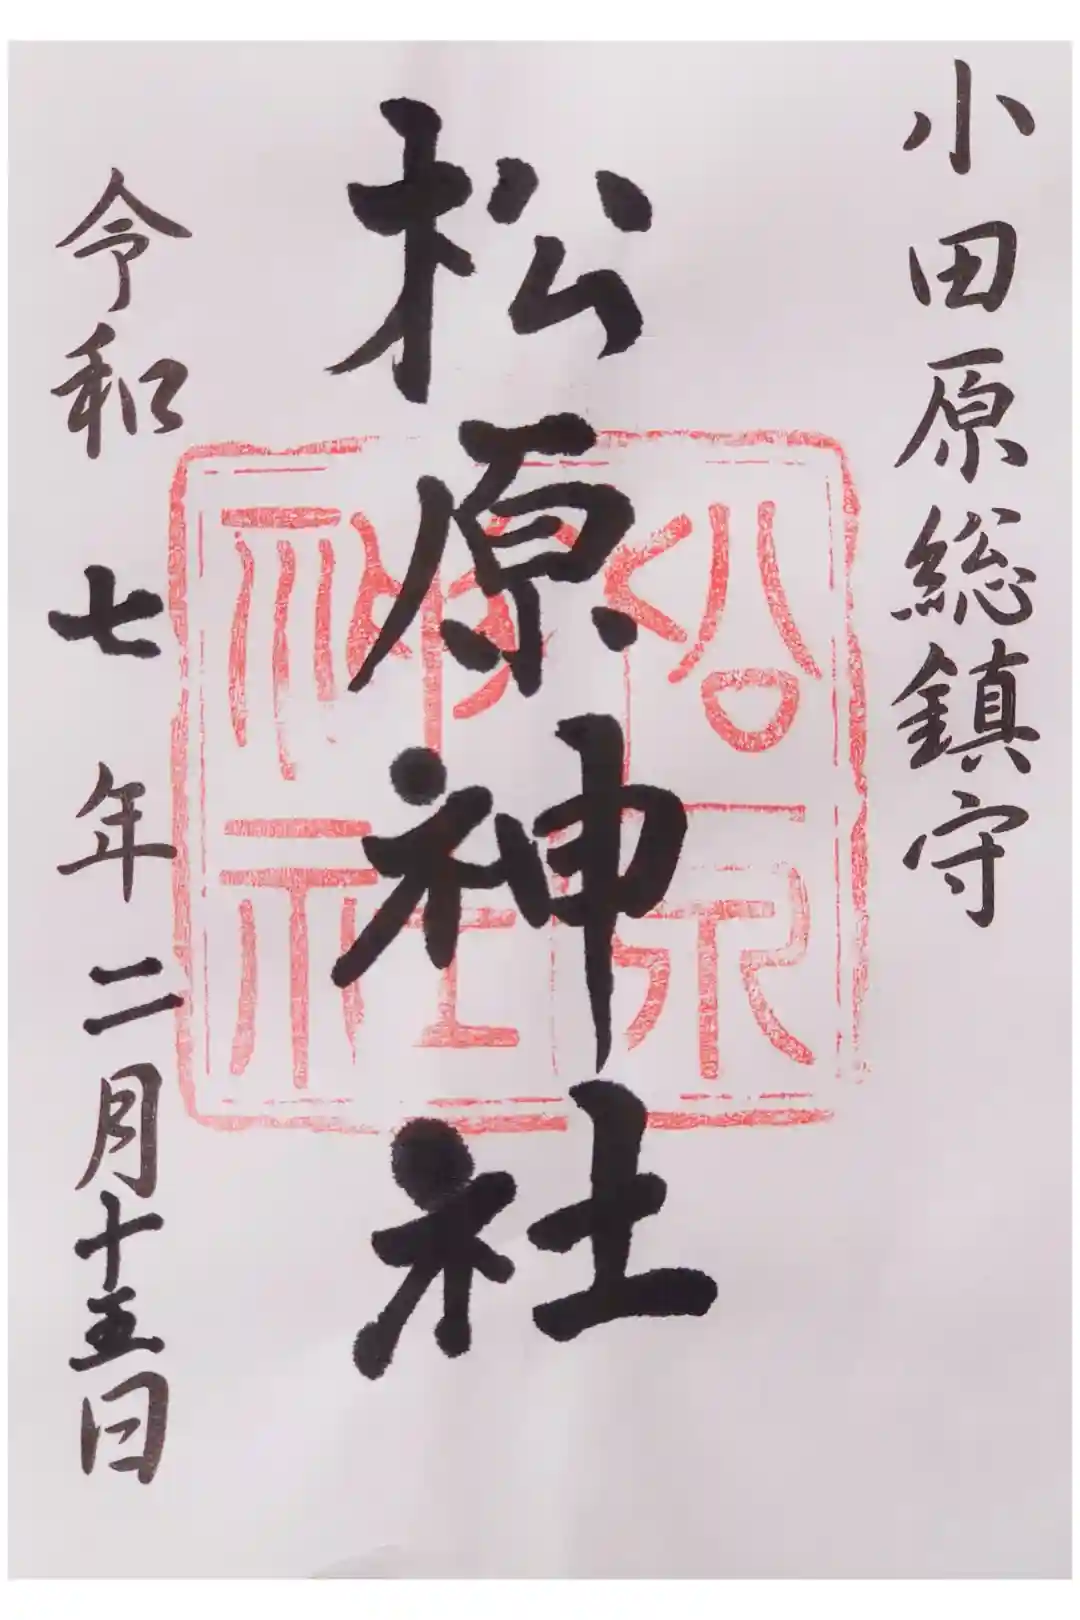 小田原総鎮守
松原神社
松原神社
令和七年二月十五日